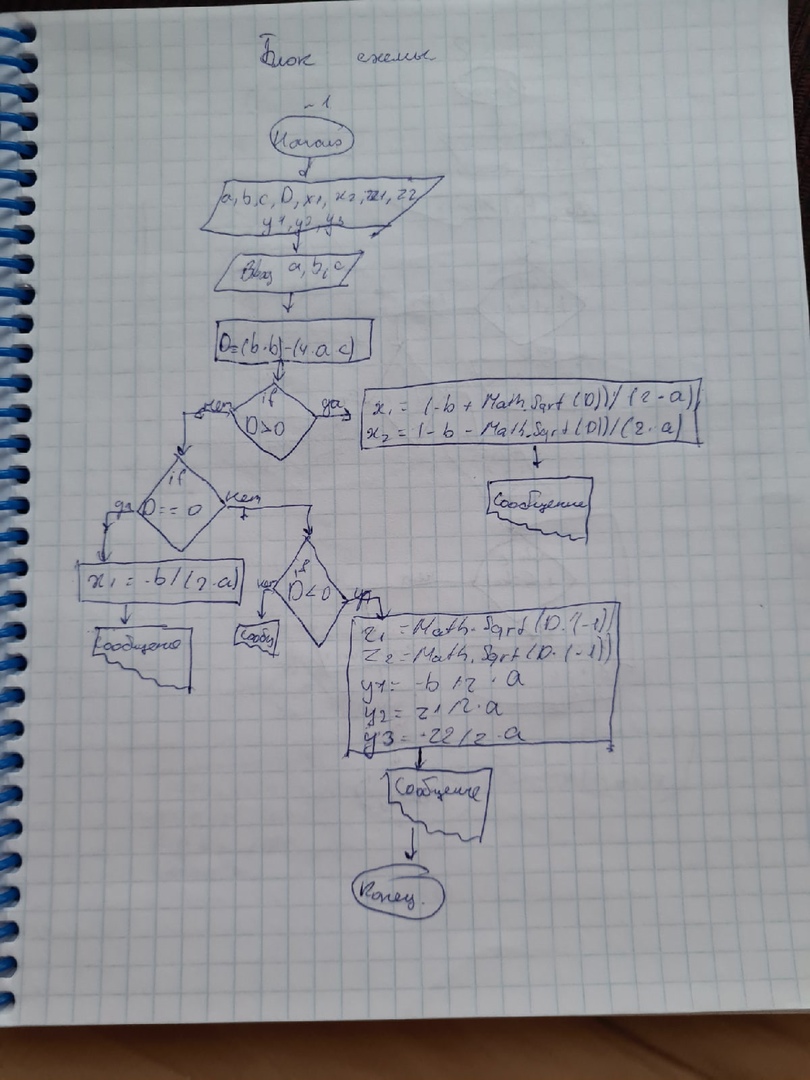 Блок схемы
~1
Начало
a, b, c, D, x1, x2, z1, z2
y1, y2, y3
Ввод a, b, c
D=(b·b)-(4·a·c)
if
D>0
нет
да
x1 = (-b + Math.Sqrt(D))/(2·a)
x2 = (-b - Math.Sqrt(D))/(2·a)
Сообщение
if
D == 0
да
нет
x1 = -b/(2·a)
Сообщение
if
D<0
нет
да
Сообщ
z1 = Math.Sqrt(D·(-1))
z2 = Math.Sqrt(D·(-1))
y1 = -b/2·a
y2 = z1/2·a
y3 = -z2/2·a
Сообщение
Конец.